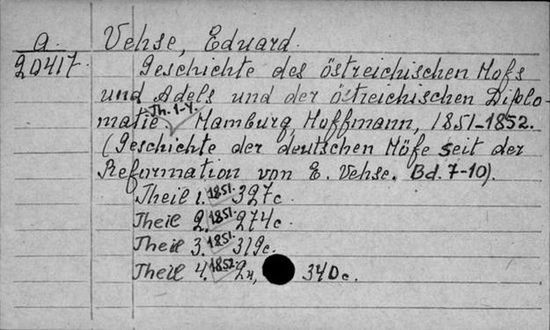 a. Vehse, Eduard.
20417. Geschichte des östreichischen Hofs
und Adels und der östreichischen Diplo-
matie. Th. 1-4. Hamburg, Hoffmann, 1851-1852.
(Geschichte der deutschen Höfe seit der
Reformation von E. Vehse. Bd. 7-10).
Theil 1. 1851. 327c.
Theil 2. 1851. 274c.
Theil 3. 1851. 319c.
Theil 4. 1852. 340c.